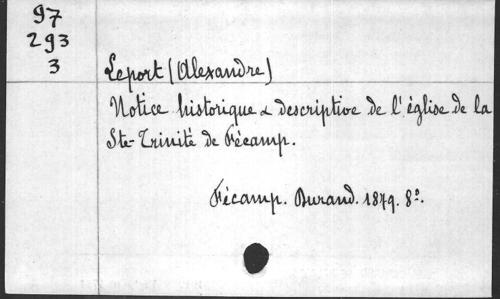 97
293
3
Leport (Alexandre)
Notice historique & descriptive de l'église de la
Ste-Trinité de Fécamp.
Fécamp. Durand. 1879. 8º.